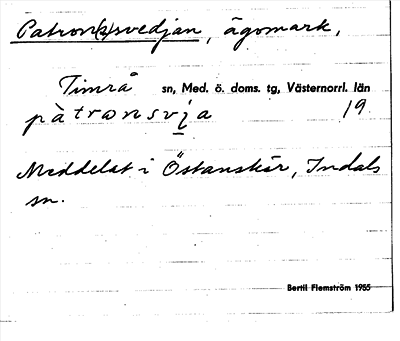 Patron(k)svedjan, ägomark,
Timrå sn, Med. ö. doms. tg, Västernorrl. län
pàtrωnsvi̯a 19.
Meddelat i Östanskär, Indals
sn.
Bertil Flemström 1955